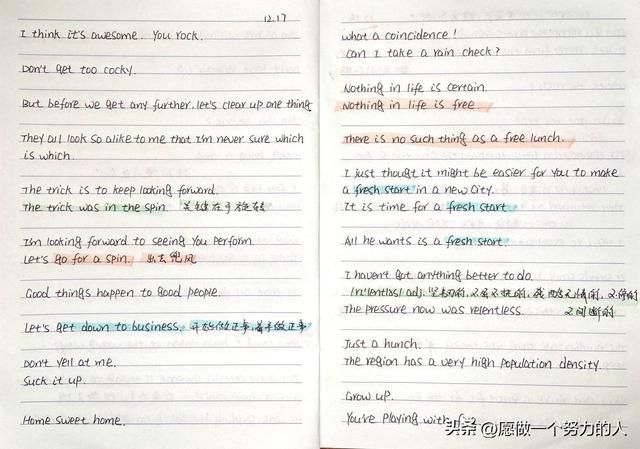 12.17
I think it's awesome. You rock.
Don't get too cocky.
But before we get any further, let's clear up one thing
They all look so alike to me that I'm never sure which
is which.
The trick is to keep looking forward.
The trick was in the spin. 关键在于旋转
I'm looking forward to seeing you perform.
Let's go for a spin. 出去兜风
Good things happen to good people.
Let's get down to business. 开始做正事,着手做正事
Don't yell at me.
Suck it up.
Home sweet home.
what a coincidence!
Can I take a rain check?
Nothing in life is certain.
Nothing in life is free.
There is no such thing as a free lunch.
I just thought it might be easier for you to make
a fresh start in a new city.
It is time for a fresh start.
All he wants is a fresh start.
I haven't got anything better to do.
adj. 坚韧的,不屈不挠的,残酷无情的,不停的
The pressure now was relentless. 不间断的
Just a hunch.
The region has a very high population density.
Grow up.
You're playing with
头条 @愿做一个努力的人